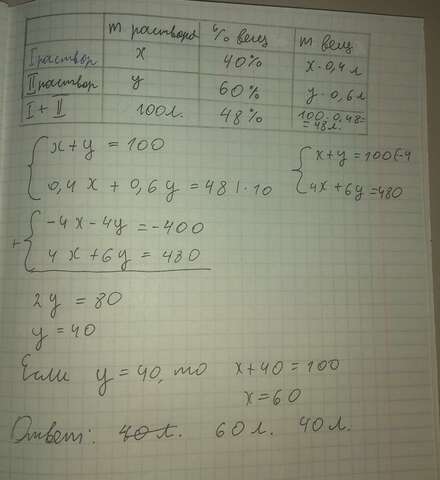 m раствора % вещ m вещ
I раствор x 40% x·0,4 л
II раствор y 60% y·0,6 л
I + II 100л. 48% 100·0,48=
=48л.
x+y = 100
0,4x + 0,6y = 48 |·10
x+y = 100 (-4
4x+6y = 480
+ -4x-4y = -400
4x+6y = 480
2y = 80
y = 40
Если y = 40, то x+40 = 100
x = 60
Ответ: 40 л. 60 л. 40 л.